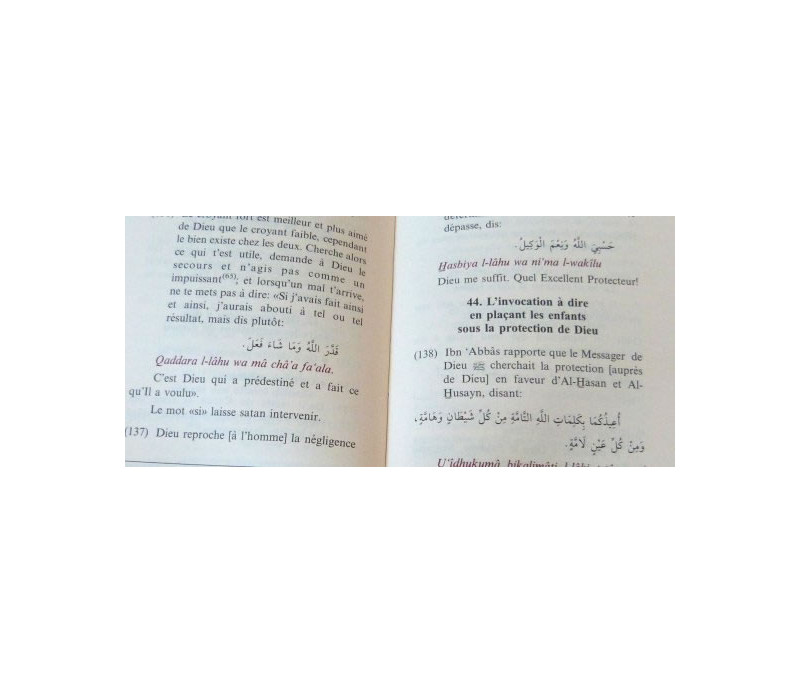 croyant fort est meilleur et plus aimé
de Dieu que le croyant faible, cependant
le bien existe chez les deux. Cherche alors
ce qui t'est utile, demande à Dieu le
secours et n'agis pas comme un
impuissant(65); et lorsqu'un mal t'arrive,
ne te mets pas à dire: «Si j'avais fait ainsi
et ainsi, j'aurais abouti à tel ou tel
résultat, mais dis plutôt:
قَدَّرَ اللَّهُ وَمَا شَاءَ فَعَلَ.
Qaddara l-lâhu wa mâ châ'a fa'ala.
C'est Dieu qui a prédestiné et a fait ce
qu'Il a voulu».
Le mot «si» laisse satan intervenir.
(137) Dieu reproche [à l'homme] la négligence
dépasse, dis:
حَسْبِيَ اللَّهُ وَنِعْمَ الْوَكِيلُ.
Hasbiya l-lâhu wa ni'ma l-wakîlu
Dieu me suffit. Quel Excellent Protecteur!
44. L'invocation à dire
en plaçant les enfants
sous la protection de Dieu
(138) Ibn 'Abbâs rapporte que le Messager de
Dieu ﷺ cherchait la protection [auprès
de Dieu] en faveur d'Al-Hasan et Al-
Husayn, disant:
أُعِيذُكُمَا بِكَلِمَاتِ اللَّهِ التَّامَّةِ مِنْ كُلِّ شَيْطَانٍ وَهَامَّةٍ،
وَمِنْ كُلِّ عَيْنٍ لَامَّةٍ.
U'îdhukumâ bikalimâti